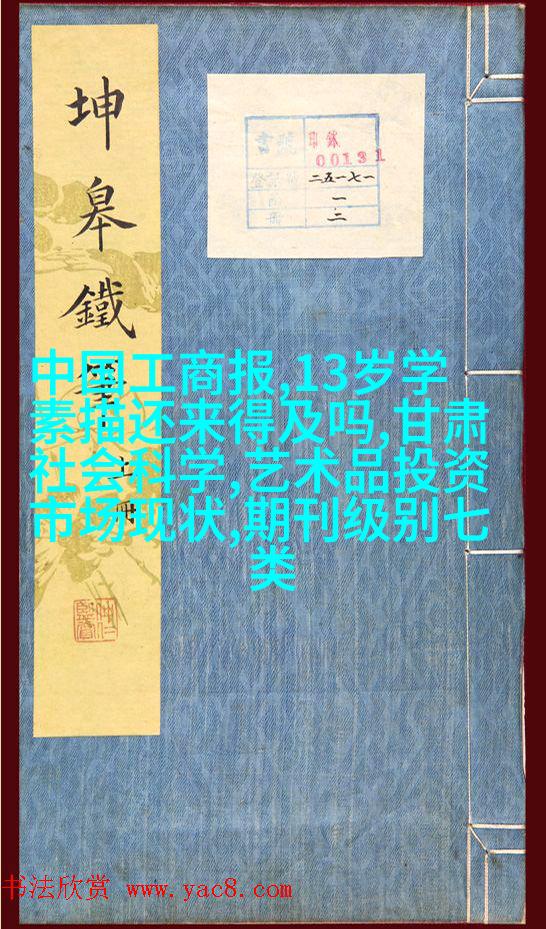 坤皋鐵
冊
書號
00131
二五一七一
一
冊 二
中国工商报,13岁学
素描还来得及吗,甘肃
社会科学,艺术品投资
市场现状,期刊级别七
类
书法欣赏 www.yac8.com